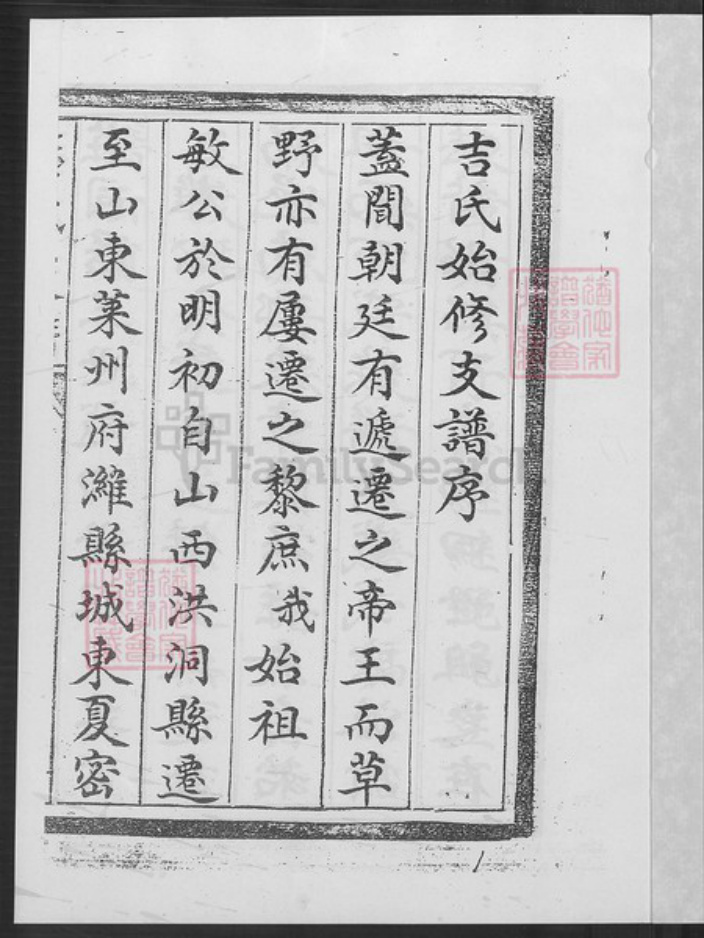 吉氏始修支譜序
蓋聞朝廷有遞遷之帝王而草
野亦有屢遷之黎庶我始祖
敏公於明初自山西洪洞縣遷
至山東萊州府濰縣城東夏密
FamilySearch